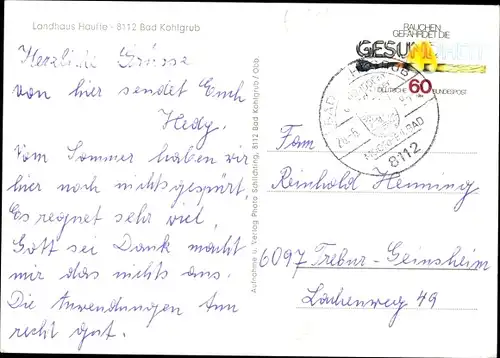 Landhaus Haufle · 8112 Bad Kohlgrub
Herzliche Grüsse
von hier sendet Euch
Hedy.
Vom Sommer haben wir
hier noch nichts gespürt,
Es regnet sehr viel,
Gott sei Dank macht
mir das nichts aus.
Die Anwendungen tun
recht gut.
Aufnahme u. Verlag Photo Schilizring, 8112 Bad Kohlgrub / Obb.
RAUCHEN
GEFÄHRDET DIE
GESUNDHEIT
DEUTSCHE 60 BUNDESPOST
BAD KOHLGRUB
MOORHEILBAD
8112
Fam
Reinhold Henning
6097 Trebur-Geinsheim
Lachenweg 49